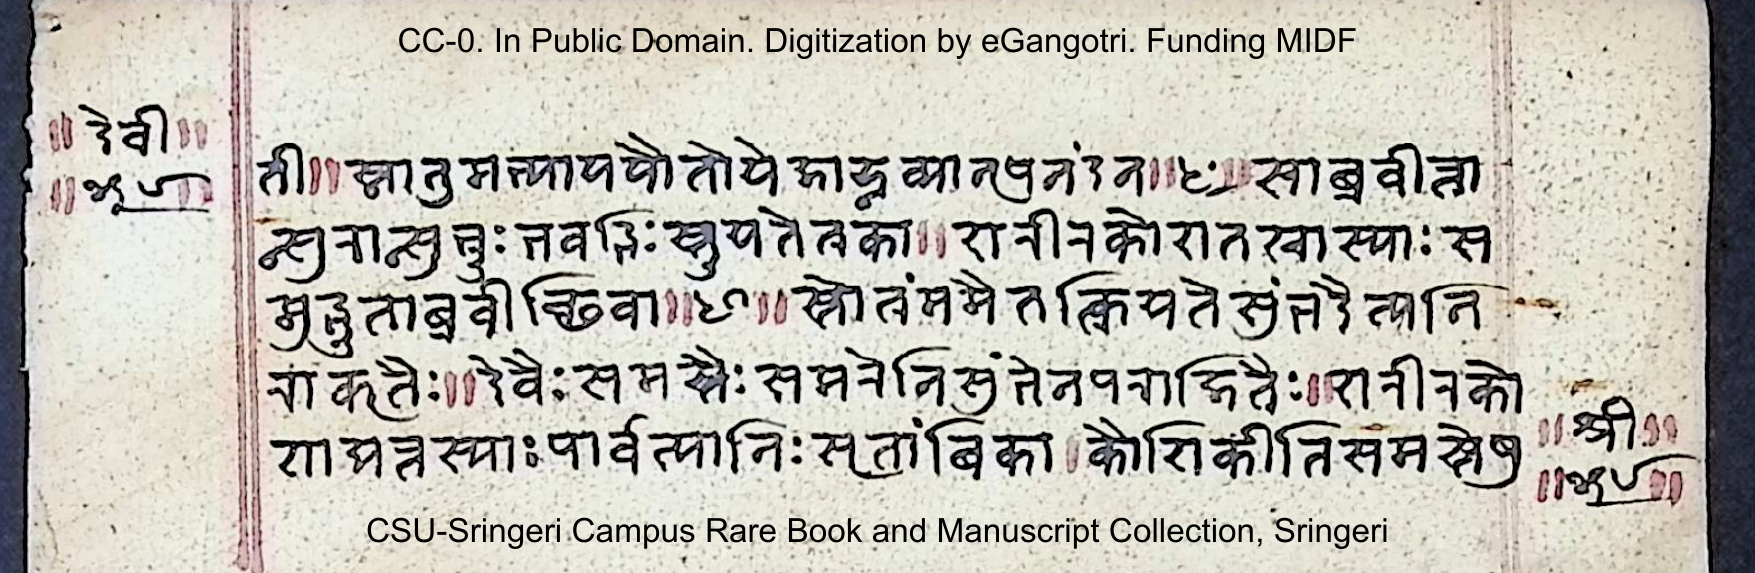 CC-0. In Public Domain. Digitization by eGangotri. Funding MIDF
॥देवी॥
ती॥स्नातुमभ्याययौतोयेजाह्नव्यानृपनंदन॥ ॥साब्रवीत्ता
न्सुरान्सुभ्रुःभवद्भिःस्तुयतेत्रका॥शरीरकोशतश्चास्याःस
मुद्भुताब्रवीच्छिवा॥ ॥स्तोत्रंममैतत्क्रियतेशुंभदैत्यनि
राकृतैः॥देवैःसमस्तैःसमरेनिशुंभेनपराजितैः॥शरीरको
शाद्यत्तस्याःपार्वत्यानिःसृतांबिका।कौशिकीतिसमस्तेषु
॥श्री॥
CSU-Sringeri Campus Rare Book and Manuscript Collection, Sringeri